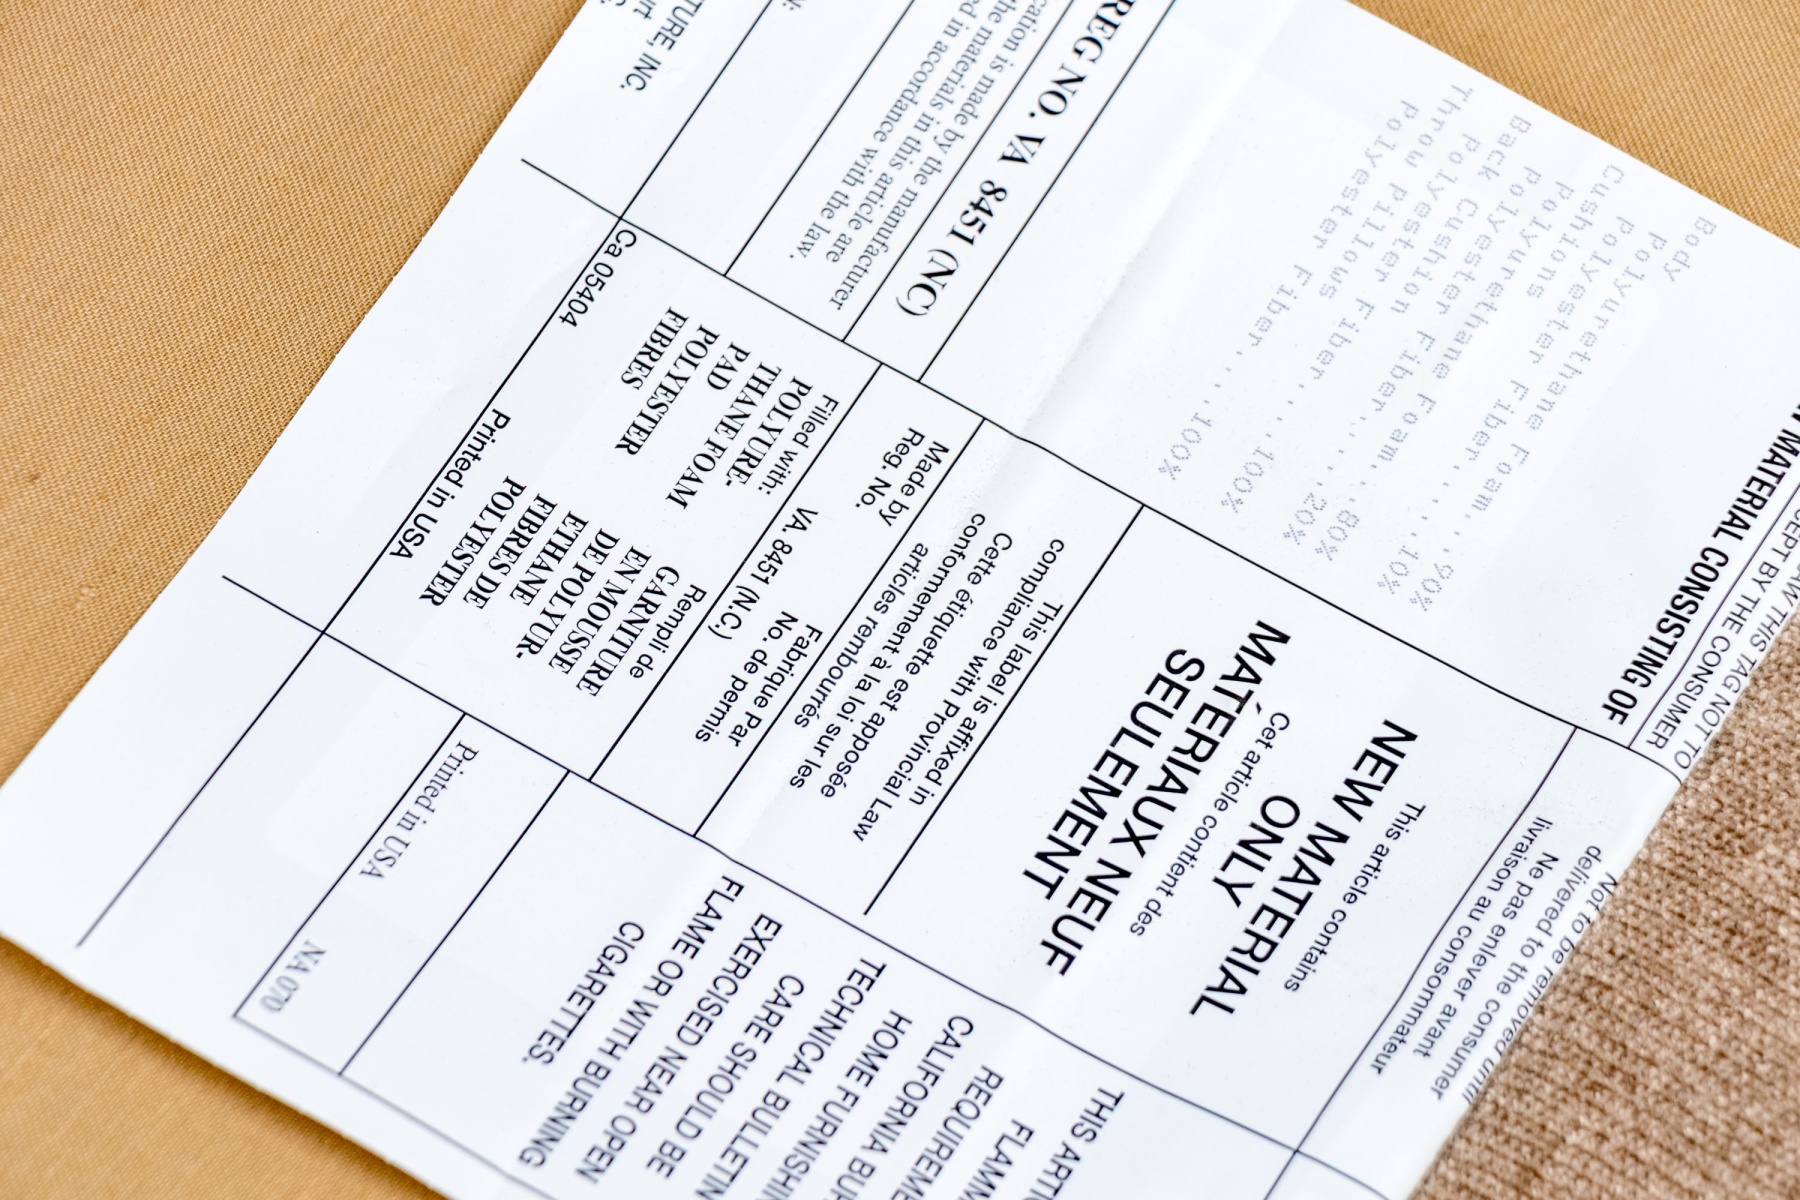 LAW THIS TAG NOT TO
EXCEPT BY THE CONSUMER
MATERIAL CONSISTING OF
Body
Polyurethane Foam...90%
Polyester Fiber......10%
Cushions
Polyurethane Foam...80%
Polyester Fiber......20%
Back Cushion
Polyester Fiber.....100%
Throw Pillows
Polyester Fiber.....100%
REG NO. VA 8451 (NC)
is made by the manufacturer
the materials in this article are
in accordance with the law.
TURE, INC.
Not to be removed until
delivered to the consumer
Ne pas enlever avant
livraison au consommateur
This article contains
NEW MATERIAL
ONLY
Cet article contient des
MATÉRIAUX NEUF
SEULEMENT
This label is affixed in
compliance with Provincial Law
Cette étiquette est apposée
conformement à la loi sur les
articles rembourrés
Made by Fabrique Par
Reg. No. No. de permis
VA. 8451 (N.C.)
Filled with: Rempli de
POLYURE- GARNITURE
THANE FOAM EN MOUSSE
PAD DE POLYUR-
POLYESTER ETHANE
FIBRES FIBRES DE
POLYESTER
Ca 05404 Printed in USA
THIS
FLAM
REQUIREM
CALIFORNIA BU
HOME FURNISHIN
TECHNICAL BULLETIN
CARE SHOULD BE
EXERCISED NEAR OPEN
FLAME OR WITH BURNING
CIGARETTES.
Printed in USA NA 070